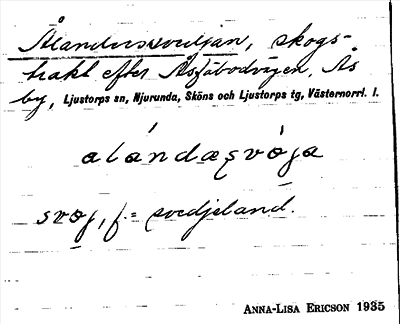 Ålandussvedjan, skogs-
trakt efter Åsfäbodvägen, Ås
by, Ljustorps sn, Njurunda, Sköns och Ljustorps tg, Västernorrl. l.
alándasvòja
svoj, f. = svedjeland.
ANNA-LISA ERICSON 1935